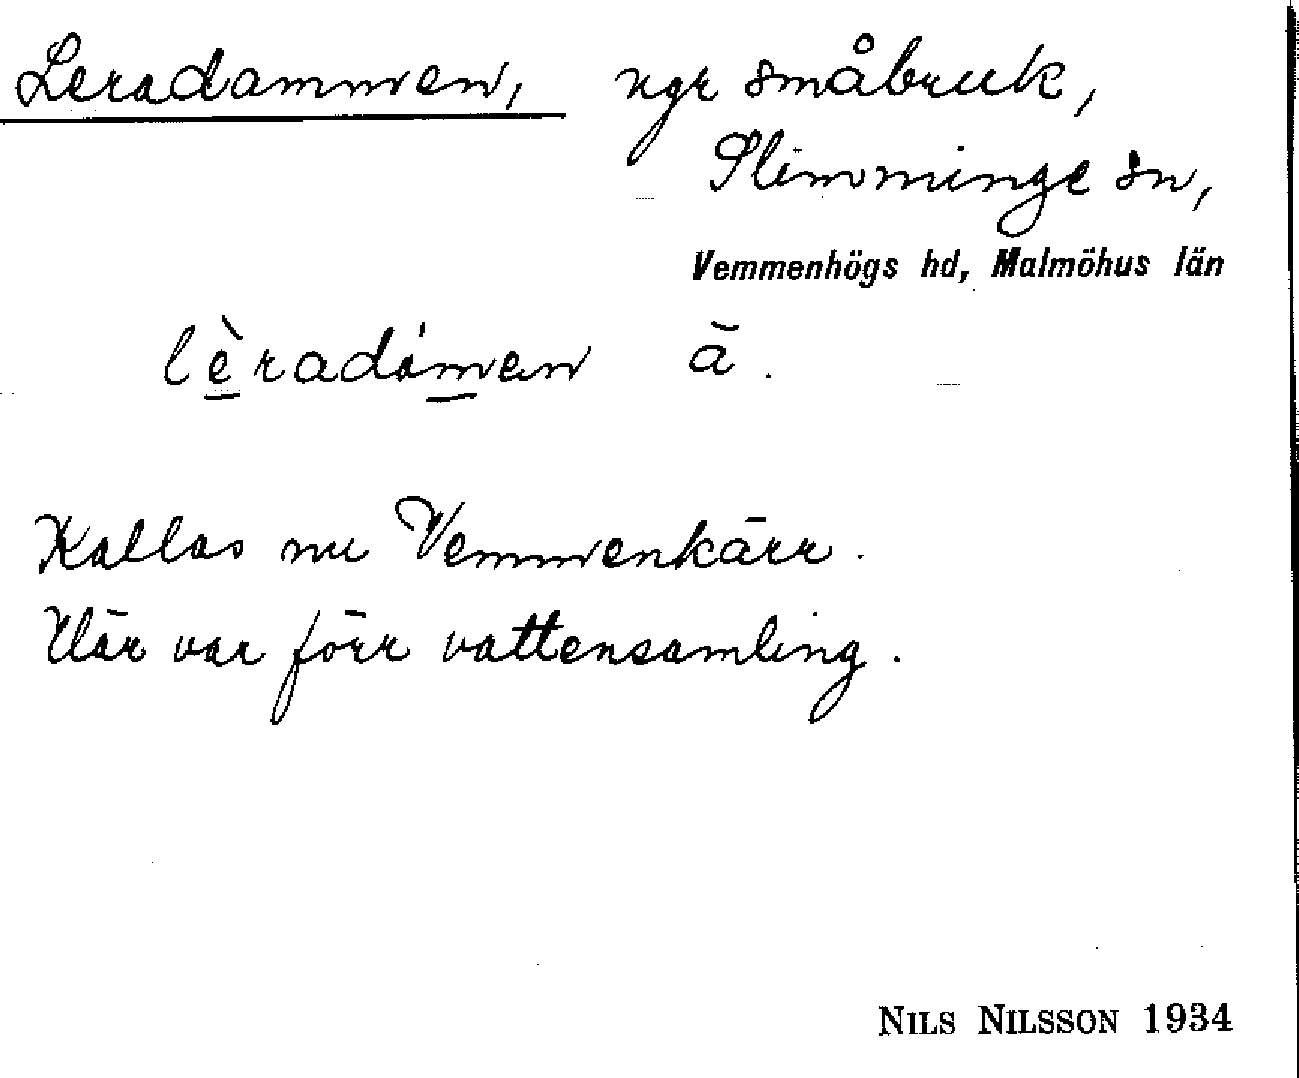 Leradammen, ngr småbruk,
Slimminge sn,
Vemmenhögs hd, Malmöhus län
lèradámen ā.
Kallas nu Vemmenkärr.
Här var förr vattensamling.
NILS NILSSON 1934